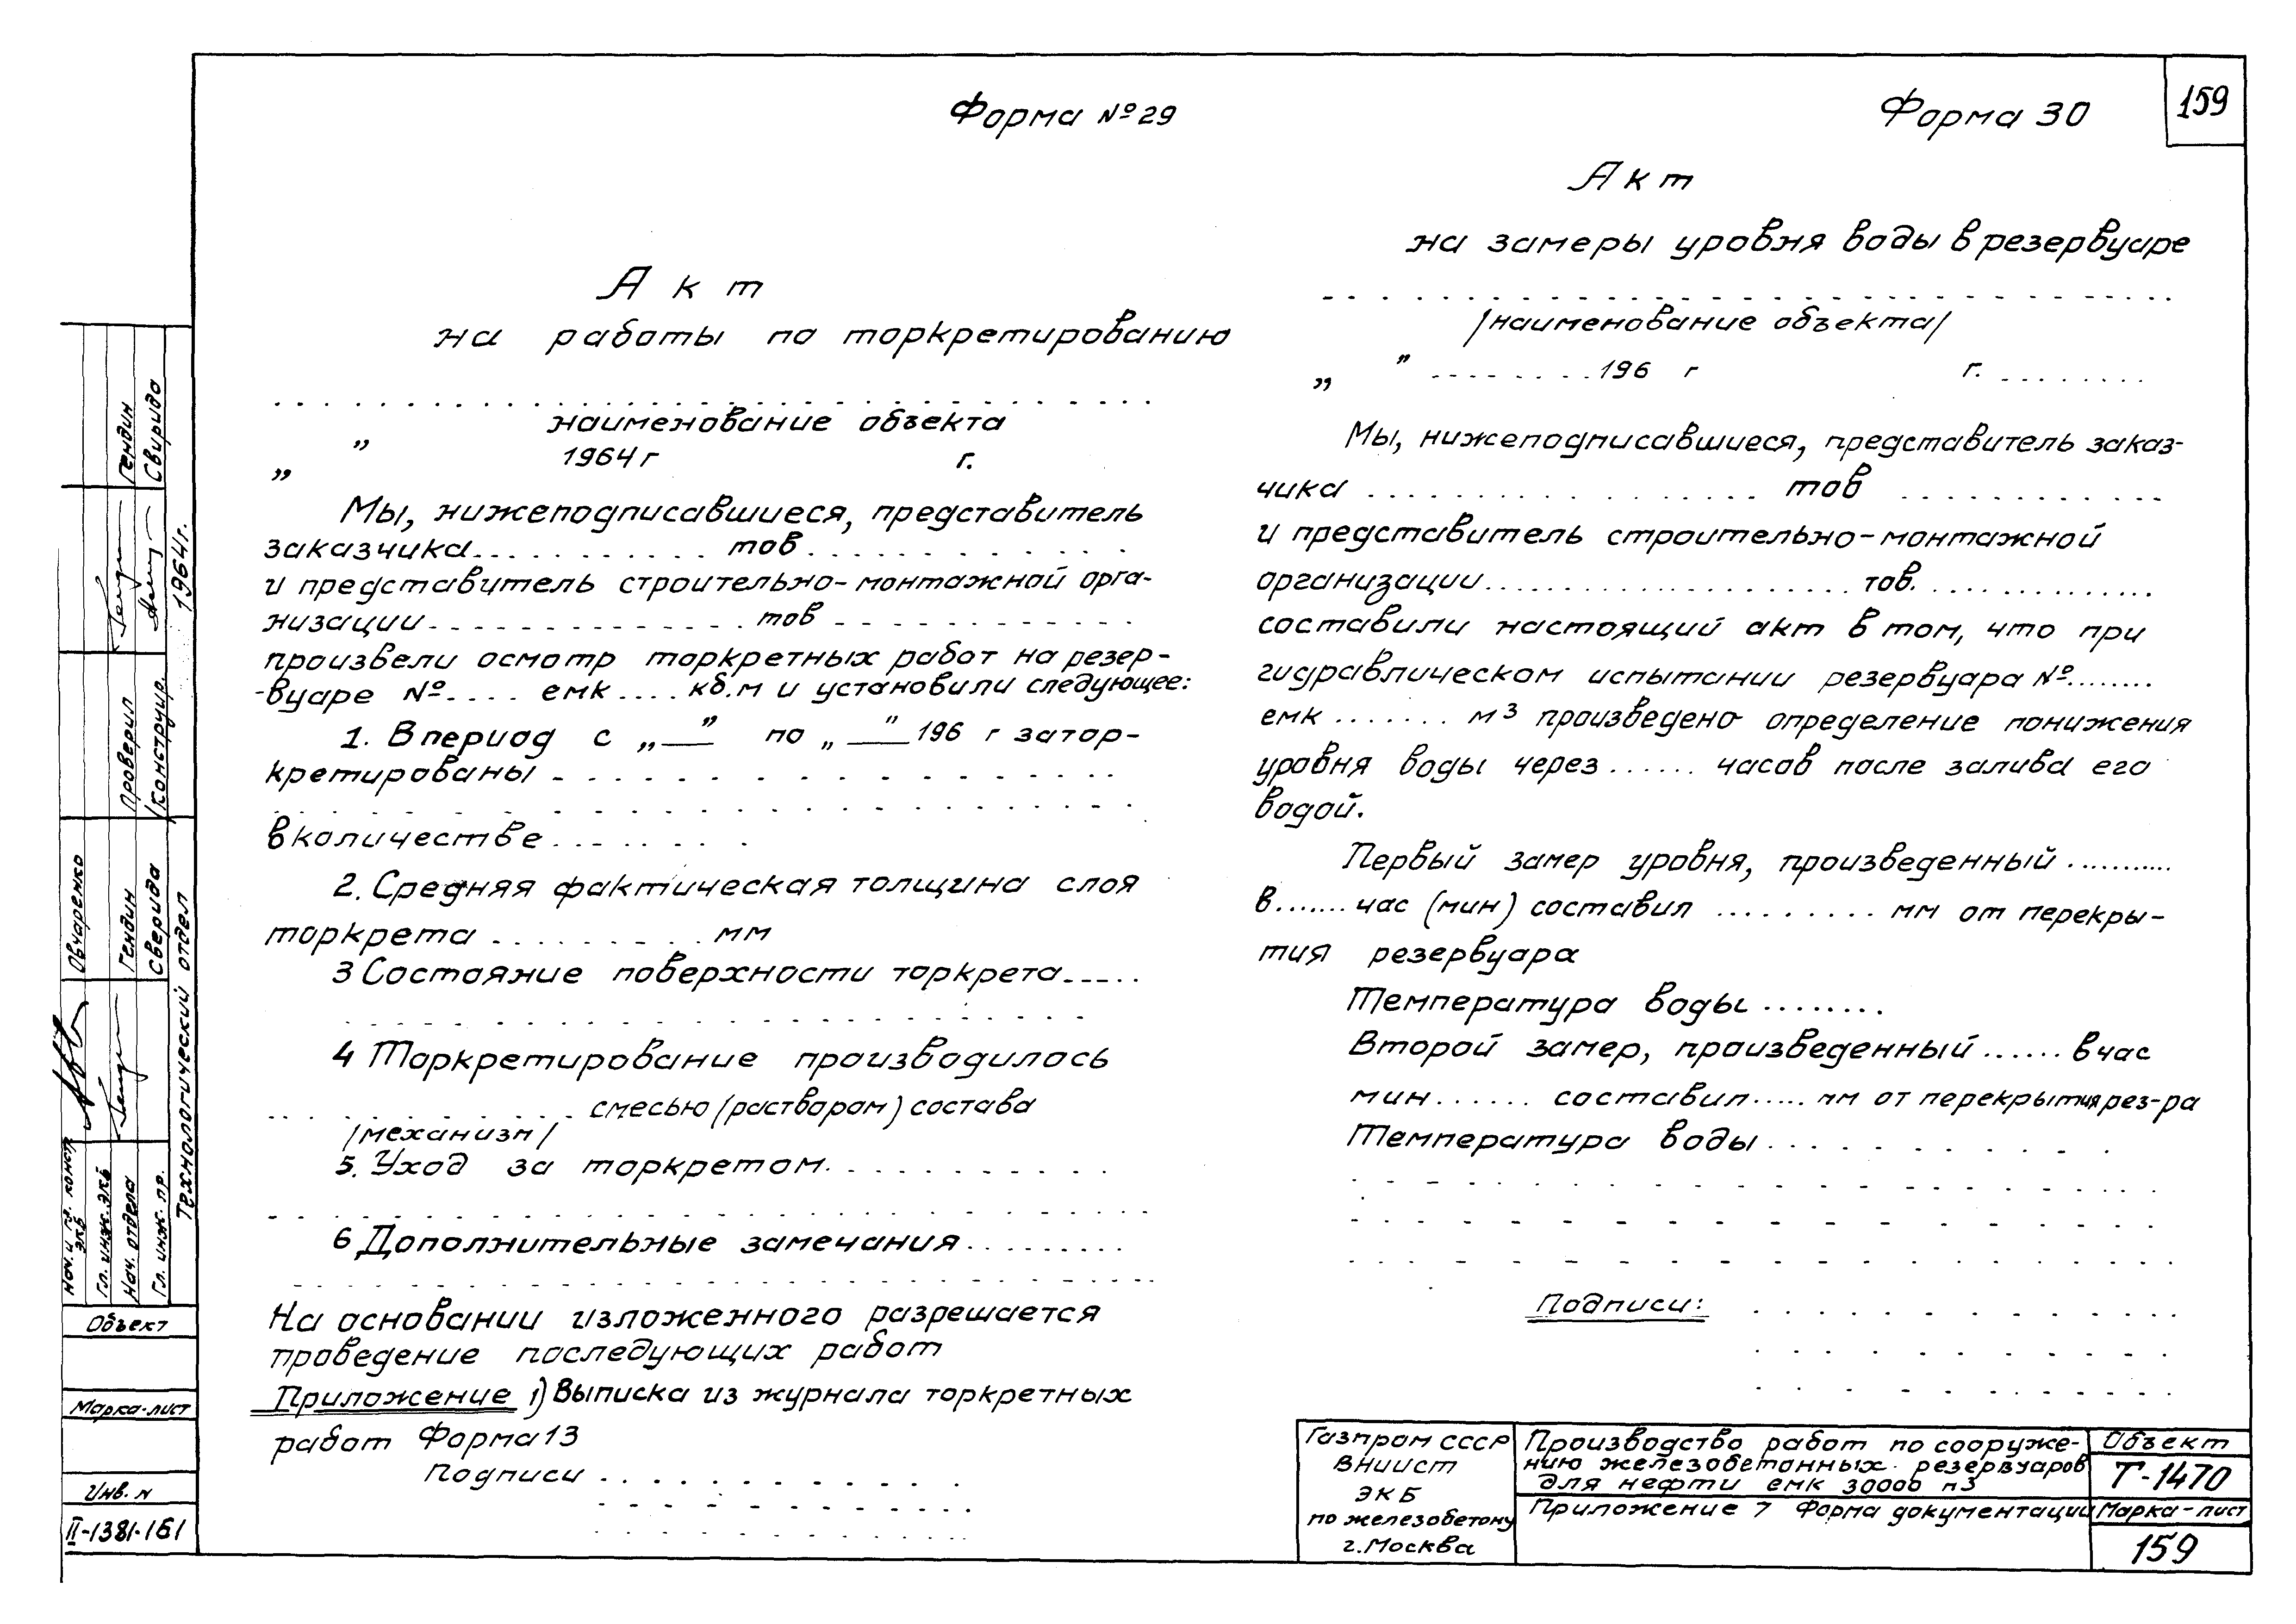 159
Форма №29
Акт
на работы по торкретированию
наименование объекта
„ ” 1964г г.
Мы, нижеподписавшиеся, представитель
заказчика........... тов............
и представитель строительно-монтажной орга-
низации.............. тов ............
произвели осмотр торкретных работ на резер-
-вуаре №.... емк .... кб.м и установили следующее:
1. В период с „__” по „__" 196 г затор-
кретированы
в количестве.........
2. Средняя фактическая толщина слоя
торкрета ......... мм
3 Состояние поверхности торкрета.....
4 Торкретирование производилось
........... смесью (раствором) состава
/механизм/
5. Уход за торкретом...........
6 Дополнительные замечания.........
На основании изложенного разрешается
проведение последующих работ
Приложение 1) Выписка из журнала торкретных
работ Форма 13
Подписи ...........
Форма 30
Акт
на замеры уровня воды в резервуаре
/наименование объекта/
„ ” .........196 г г. ........
Мы, нижеподписавшиеся, представитель заказ-
чика ............... тов ..........
и представитель строительно-монтажной
организации.................... тов. .............
составили настоящий акт в том, что при
гидравлическом испытании резервуара №........
емк ....... м3 произведено определение понижения
уровня воды через...... часов после залива его
водой.
Первый замер уровня, произведенный ..........
в....... час (мин) составил ......... мм от перекры-
тия резервуара
Температура воды ........
Второй замер, произведенный ...... в час
мин...... составил ..... мм от перекрытия рез-ра
Температура воды ..........
Подписи:
Гендин
Свирида
1964г.
Проверил
Конструир.
Овчаренко
Гендин
Сверида
Технологический отдел
Нач. и гл. конст.
ЭКБ
Гл. инж. ЭКБ
Нач. отдела
Гл. инж. пр.
Объект
Марка-лист
Инв. н
II-1381-161
Газпром СССР
ВНИИСТ
ЭКБ
по железобетону
г. Москва
Производство работ по сооруже-
нию железобетонных резервуаров
для нефти емк 30000 м3
Приложение 7 Форма документации
Объект
Т-1470
Марка-лист
159